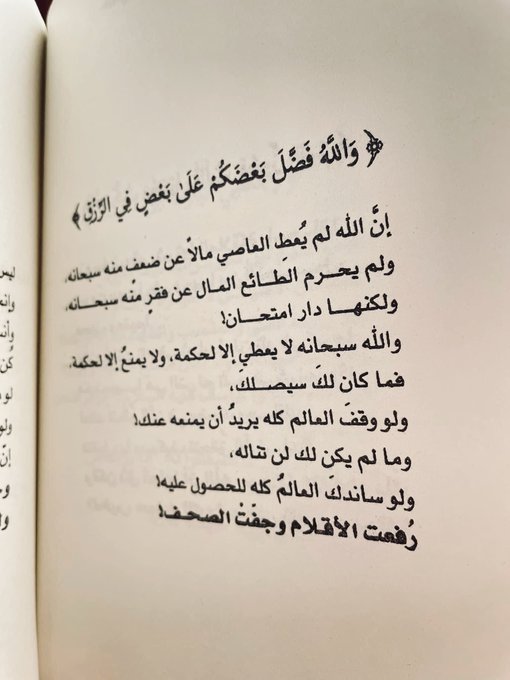 ﴿ وَاللَّهُ فَضَّلَ بَعْضَكُمْ عَلَىٰ بَعْضٍ فِي الرِّزْقِ ﴾
إنَّ الله لم يُعطِ العاصي مالاً عن ضعف منه سبحانه،
ولم يحرم الطائع المال عن فقرٍ منْه سبحانه،
ولكنها دار امتحان!
والله سبحانه لا يعطي إلا لحكمة، ولا يمنعُ إلا لحكمة،
فما كان لكَ سيصلك،
ولو وقفَ العالم كله يريدُ أن يمنعه عنك!
وما لم يكن لك لن تناله،
ولو ساندكَ العالمُ كله للحصول عليه!
رُفعت الأقلام وجفّتْ الصحف!
ليس
وأنت
كُن
لو
ولو
إنّ